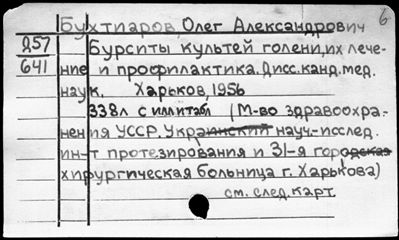 6
Бухтиаров, Олег Александрович
Д57 Бурситы культей голени, их лече-
641 ние и профилактика. Дисс. канд. мед.
наук. Харьков, 1956
338л с илл. и табл (М-во здравоохра-
нения УССР. Украинский науч.-исслед.
ин-т протезирования и 31-я городская
хирургическая больница г. Харькова)
см. след. карт.